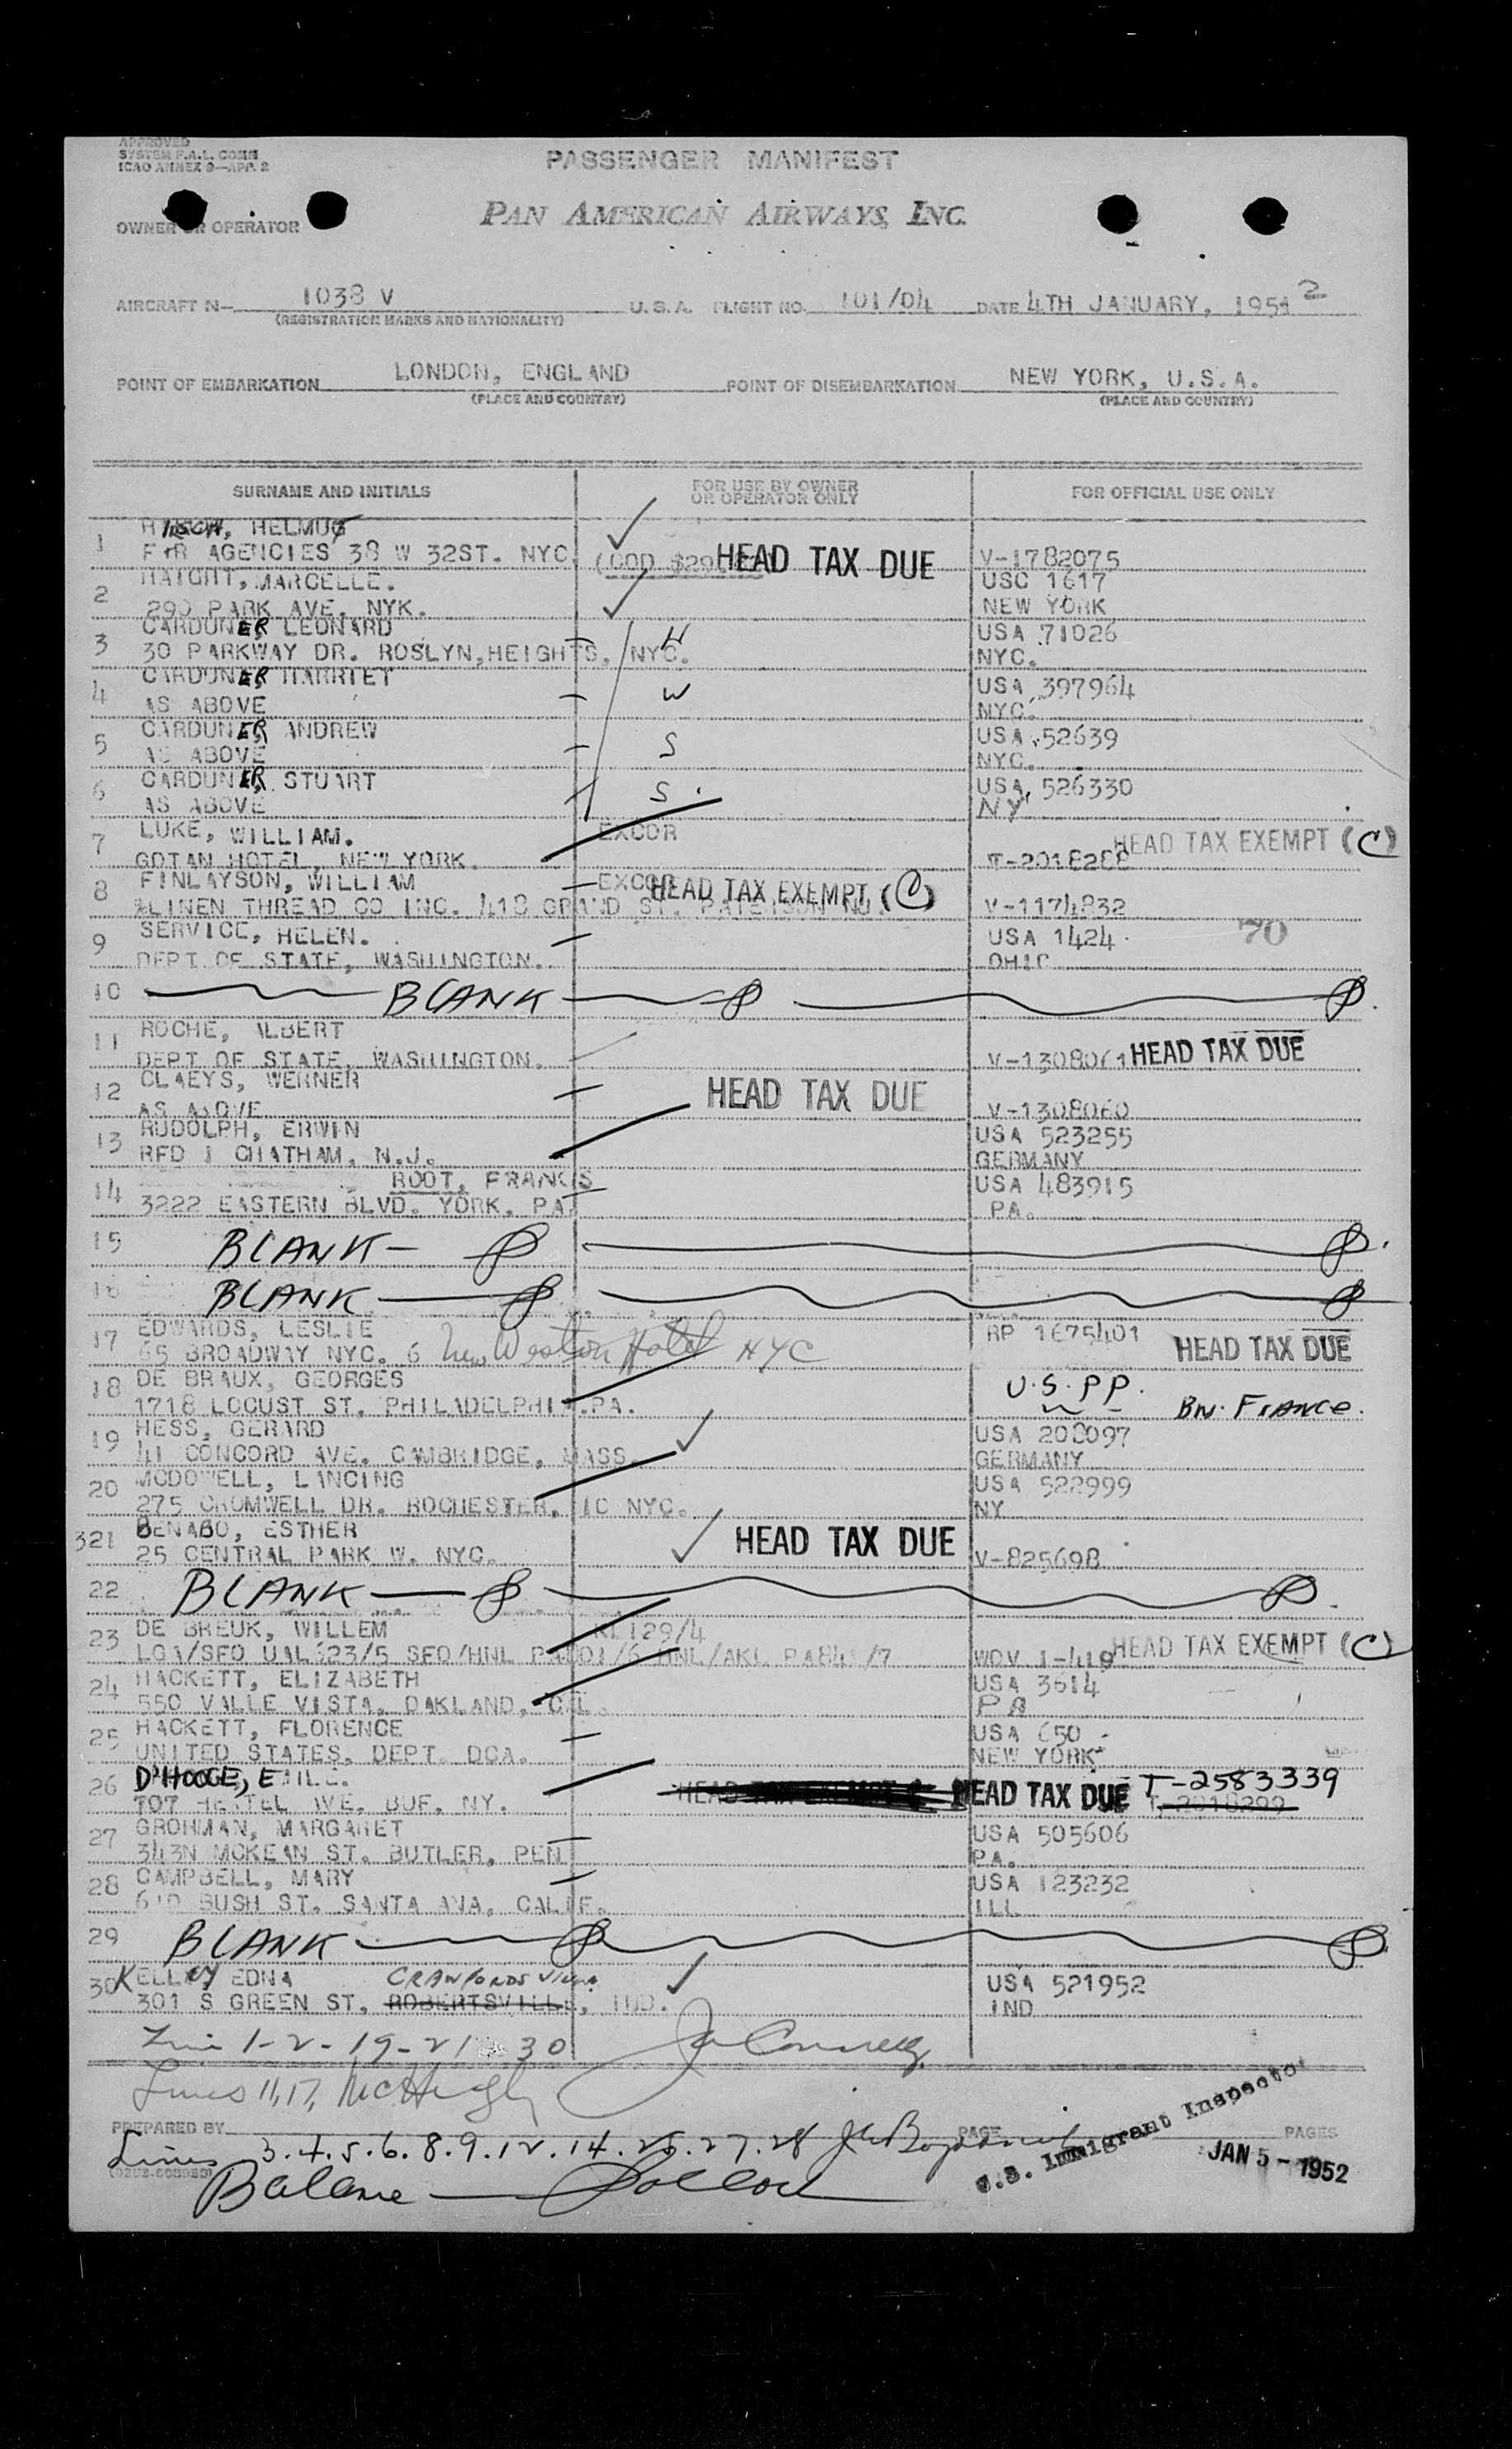 APPROVED
SYSTEM F.A.L. COMM
ICAO ANNEX 9—APP. 2
PASSENGER MANIFEST
OWNER OR OPERATOR
PAN AMERICAN AIRWAYS, INC.
AIRCRAFT N— 1038 V U.S.A. FLIGHT NO. 101/04 DATE 4TH JANUARY, 1951 2
(REGISTRATION MARKS AND NATIONALITY)
POINT OF EMBARKATION LONDON, ENGLAND POINT OF DISEMBARKATION NEW YORK, U.S.A.
(PLACE AND COUNTRY) (PLACE AND COUNTRY)
SURNAME AND INITIALS FOR USE BY OWNER OR OPERATOR ONLY FOR OFFICIAL USE ONLY
1 HIRSCH, HELMUT
AGENCIES 38 W 32ST. NYC. (COD HEAD TAX DUE V-1782075
2 HAIGHT, MARCELLE. USC 1617
290 PARK AVE. NYK. NEW YORK
3 CARDUNER LEONARD H USA 71026
30 PARKWAY DR. ROSLYN, HEIGHTS, NYC. NYC.
4 CARDUNER HARRIET W USA 397964
AS ABOVE NYC.
5 CARDUNER ANDREW S USA 52639
AS ABOVE NYC.
6 CARDUNER STUART S USA 526330
AS ABOVE NY
7 LUKE, WILLIAM. EXCOR HEAD TAX EXEMPT (C)
GOTAN HOTEL, NEW YORK. T-2018288
8 FINLAYSON, WILLIAM EXCOR HEAD TAX EXEMPT (C)
%LINEN THREAD CO INC. 418 GRAND ST. PATERSON NJ. V-1174832
9 SERVICE, HELEN. USA 1424 70
DEPT OF STATE, WASHINGTON. OHIO
10 BLANK
11 ROCHE, ALBERT
DEPT OF STATE, WASHINGTON. V-1308061 HEAD TAX DUE
12 CLAEYS, WERNER HEAD TAX DUE
AS ABOVE V-1308060
13 RUDOLPH, ERWIN USA 523255
RFD 1 CHATHAM, N.J. GERMANY
14 ROOT, FRANCIS USA 483915
3222 EASTERN BLVD. YORK, PA. PA.
15 BLANK
16 BLANK
17 EDWARDS, LESLIE RP 1675401 HEAD TAX DUE
65 BROADWAY NYC. 6 New Weston Hotel NYC
18 DE BRAUX, GEORGES U.S.P.P.
1718 LOCUST ST. PHILADELPHIA.PA. BN. FRANCE.
19 HESS, GERARD USA 200097
41 CONCORD AVE. CAMBRIDGE, MASS. GERMANY
20 MCDOWELL, LANCING USA 522999
275 CROMWELL DR. ROCHESTER, 10 NYC. NY
321 BENABO, ESTHER HEAD TAX DUE
25 CENTRAL PARK W. NYC. V-825698
22 BLANK
23 DE BREUK, WILLEM KL129/4 HEAD TAX EXEMPT (C)
LGA/SFO UAL623/5 SFO/HNL PA801/6 HNL/AKL PA841/7 WDV 1-419
24 HACKETT, ELIZABETH USA 3614
550 VALLE VISTA, OAKLAND, CAL. PA
25 HACKETT, FLORENCE USA 650
UNITED STATES, DEPT. DCA. NEW YORK
26 D'HOOGE, EMILE. HEAD TAX EXEMPT HEAD TAX DUE T-2583339
707 HERTEL AVE. BUF. NY. T-2018299
27 GROHMAN, MARGARET USA 505606
343N MCKEAN ST. BUTLER, PEN PA.
28 CAMPBELL, MARY USA 123232
BUSH ST. SANTA ANA, CALIF. ILL
29 BLANK
30 KELLEY EDNA CRAWFORDSVILLE USA 521952
301 S GREEN ST. ROBERTSVILLE, IND. IND
1-2-19-21 30
Lines 11, 17, McHugh
PREPARED BY PAGE PAGES
Lines 3.4.5.6.8.9.12.14.25.27.28
U.S. Immigrant Inspector
JAN 5 - 1952
Balance